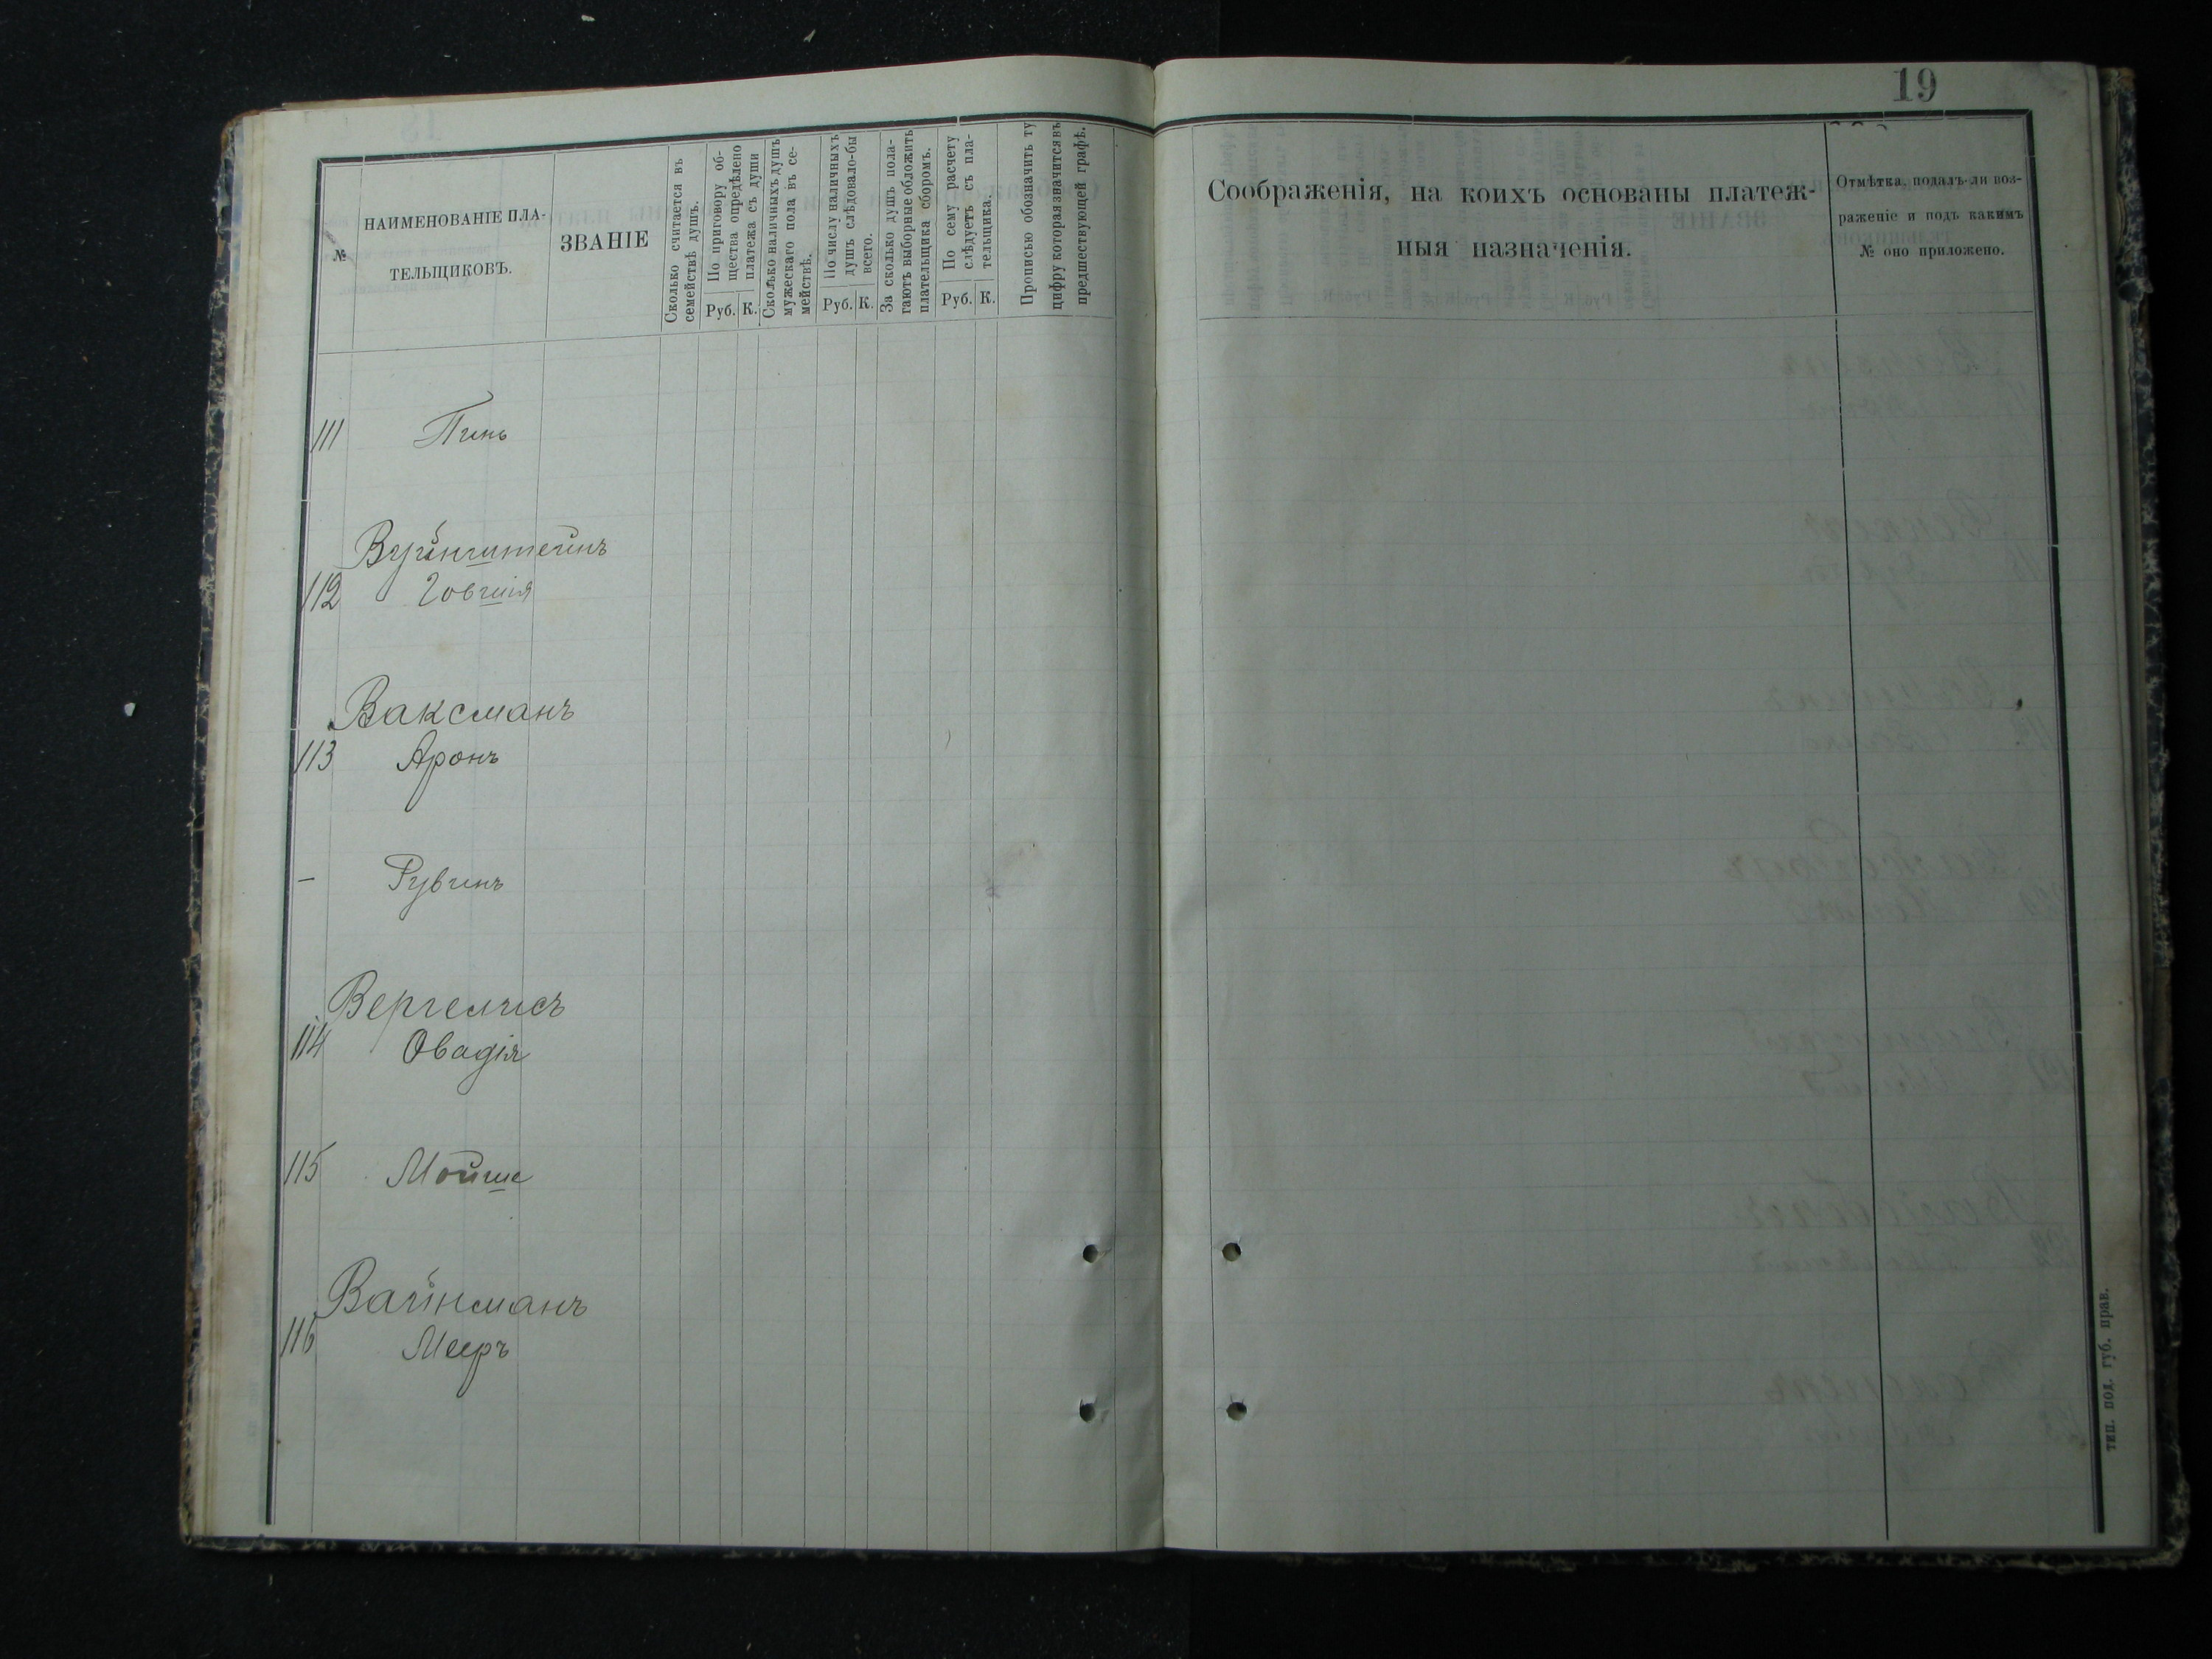 19
№
НАИМЕНОВАНІЕ ПЛА-
ТЕЛЬЩИКОВЪ.
ЗВАНІЕ
Сколько считается въ
семействѣ душъ.
По приговору об-
щества опредѣлено
платежа съ души
Руб. К.
Сколько наличныхъ душъ
мужескаго пола въ се-
мействѣ.
По числу наличныхъ
душъ слѣдовало-бы
всего.
Руб. К.
За сколько душъ пола-
гаютъ выборные обложить
плательщика сборомъ.
По сему расчету
слѣдуетъ съ пла-
тельщика.
Руб. К.
Прописью обозначить ту
цифру которая значится въ
предшествующей графѣ.
Соображенія, на коихъ основаны платеж-
ныя назначенія.
Отмѣтка, подалъ-ли воз-
раженіе и подъ какимъ
№ оно приложено.
111 Пинь
Вуйнштейнъ
112 Говшія
Ваксманъ
113 Аронъ
— Рувинъ
Вергелисъ
114 Овадія
115 Мойше
Вайнманъ
116 Мееръ
тип. под. губ. прав.